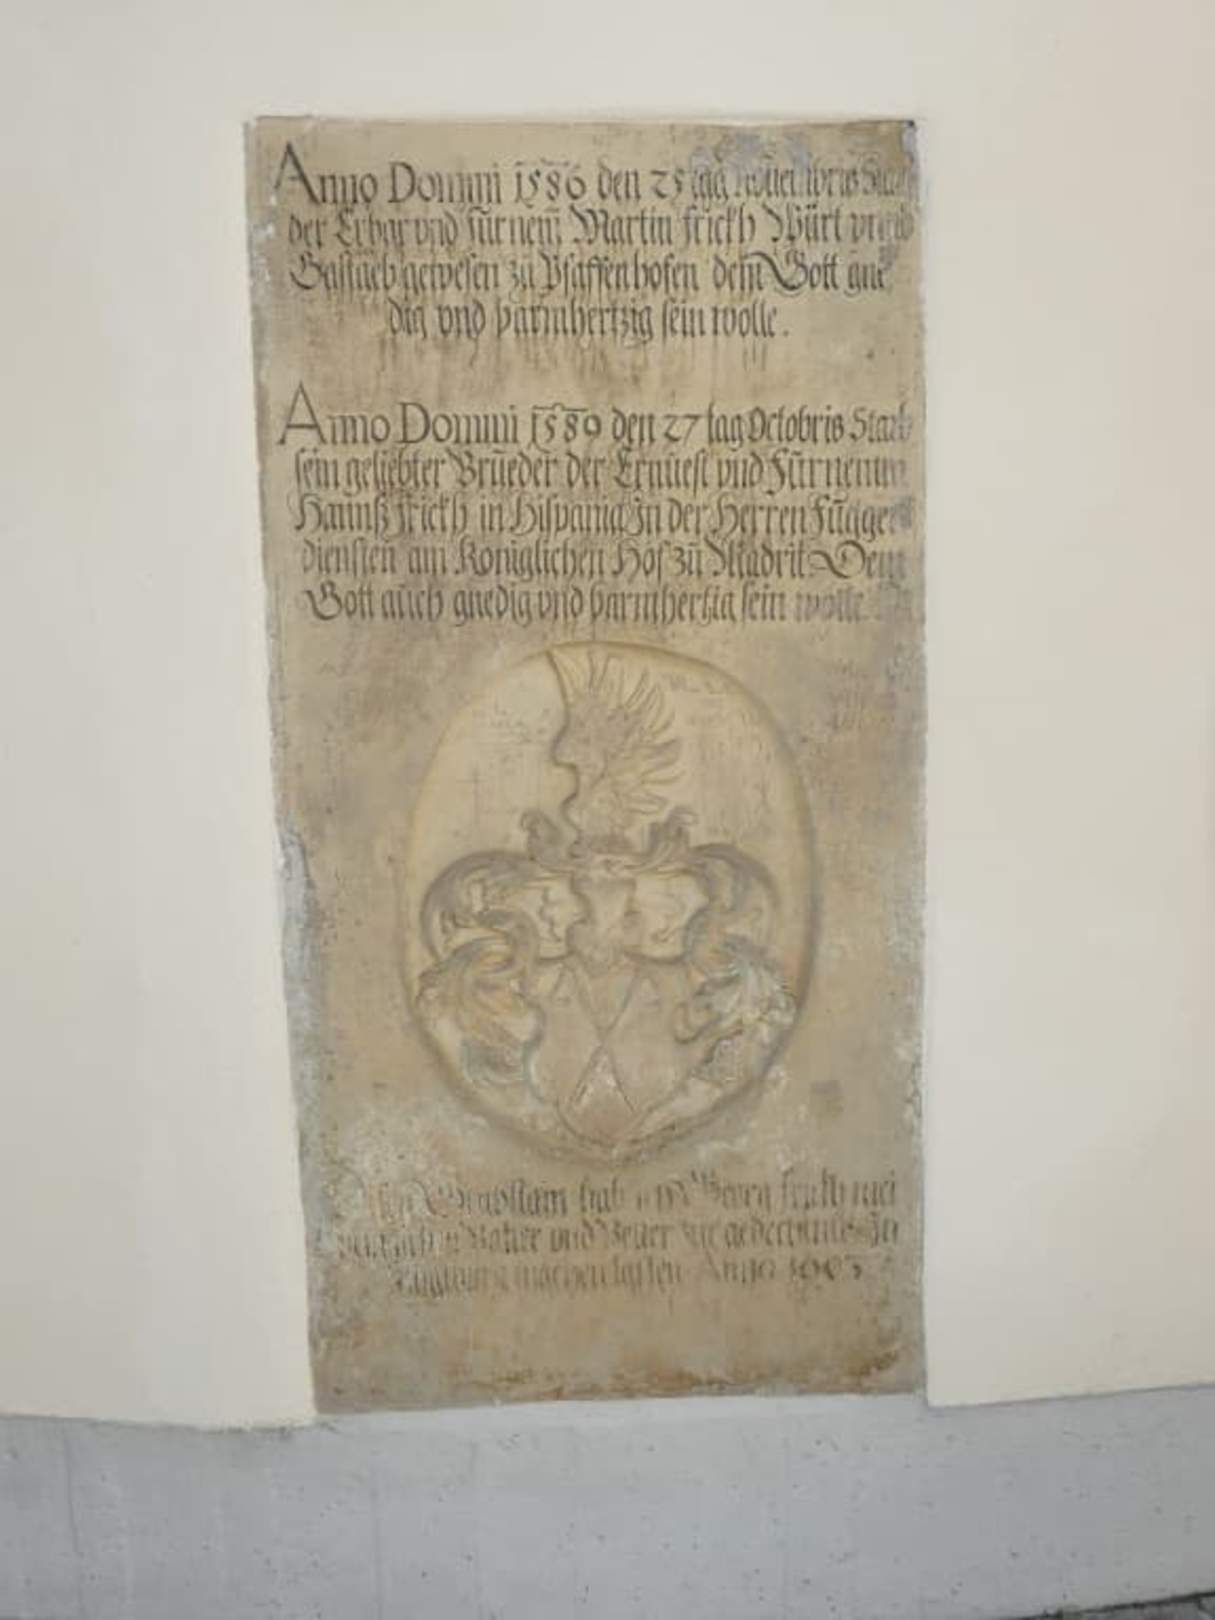 Anno Domini 1586 den 25 tag Nouembris Starb
der Erbar vnd fürnem̄ Martin frickh Würt vnnd
Gastgeb gewesen zu Pfaffenhofen dem Gott gne
dig vnd barmhertzig sein wolle.
Anno Domini 1589 den 27 tag Octobris Starb
sein geliebter Brueder der Ernuest vnd Fürnemm
Hannß frickh in Hispania In der Herren Fugger
diensten am Koniglichen Hof zu Madrit. Dem
Gott auch gnedig vnd barmhertzig sein wolle.
Grabstain hab Georg frickh mei
Vatter vnd Vetter gedechtnus
machen lassen Anno